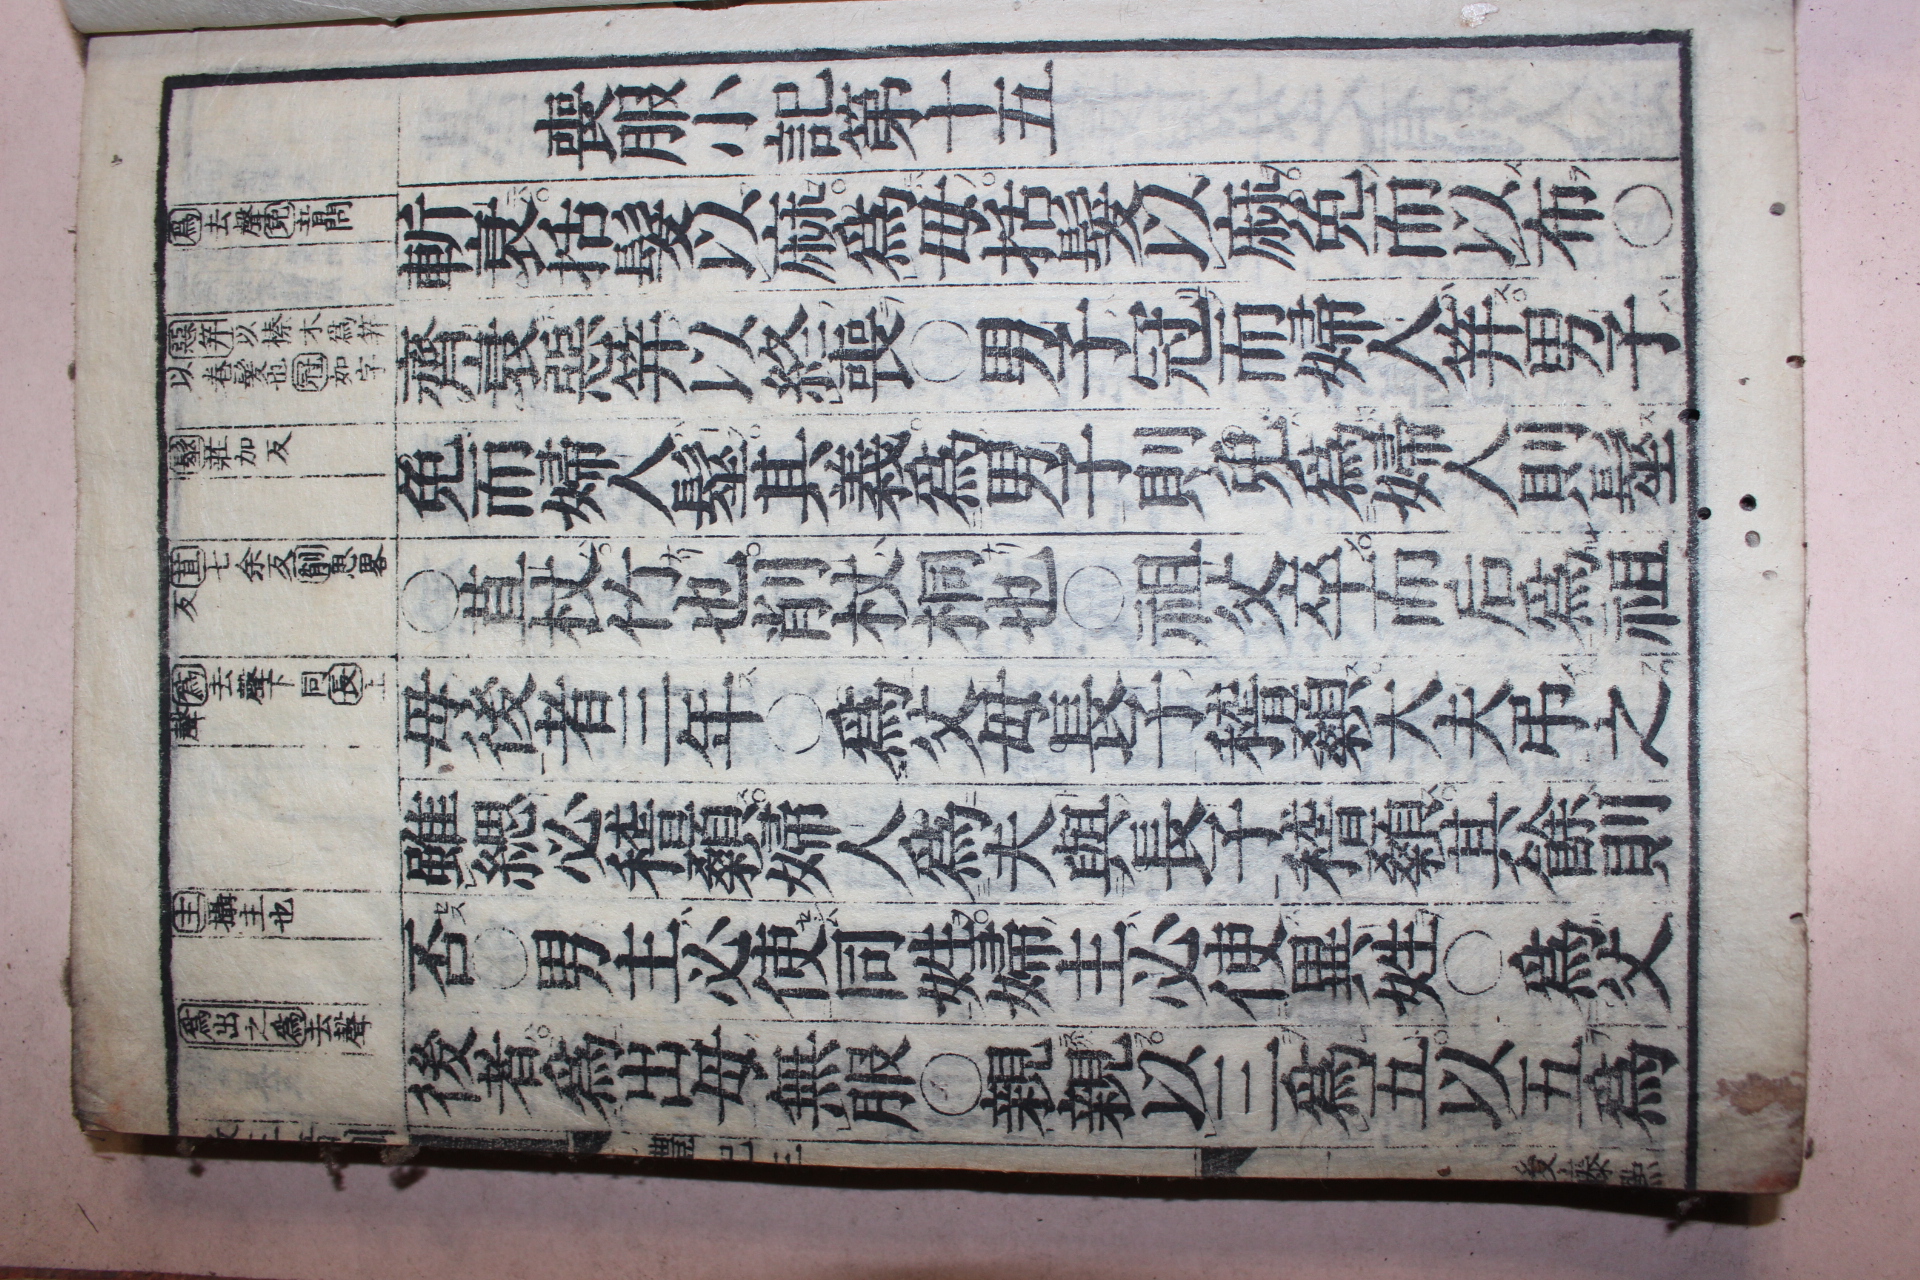 喪服小記第十五
斬衰括髮以麻爲母括髮以麻免而以布○
齊衰惡笄以終喪○男子冠而婦人笄男子
免而婦人髽其義爲男子則免爲婦人則髽
○苴杖竹也削杖桐也○祖父卒而后爲祖
母後者三年○爲父母長子稽顙大夫弔之
雖緦必稽顙婦人爲夫與長子稽顙其餘則
否○男主必使同姓婦主必使異姓○爲父
後者爲出母無服○親親以三爲五以五爲
爲去聲免音問
惡笄以榛木爲笄
以卷髮也冠如字
髽莊加反
苴七余反削思畧
反
爲去聲下同長上
聲
主攝主也
爲出之爲去聲
禮記三
後藤點